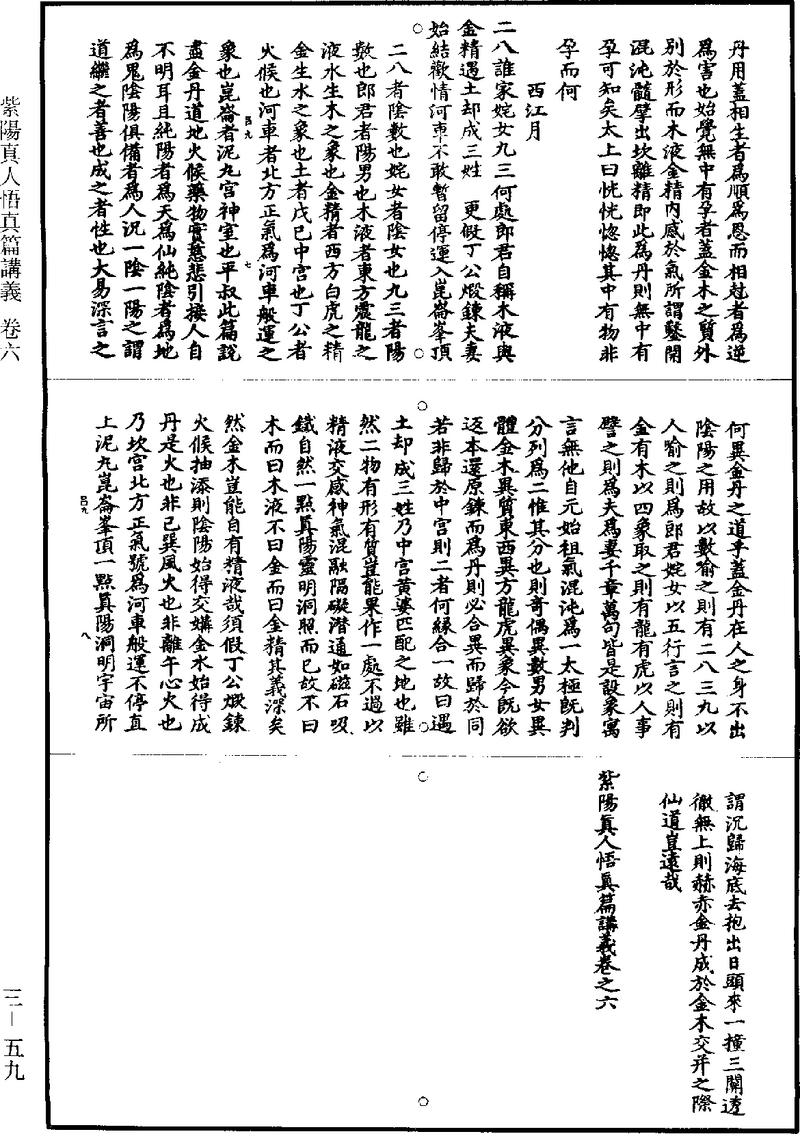 丹用蓋相生者為順為恩而相尅者為逆
為害也始覺無中有孕者蓋金木之質外
別於形而木液金精內感於氣所謂鑿開
混沌髓擘出坎離精即此為丹則無中有
孕可知矣太上曰恍恍惚惚其中有物非
孕而何
西江月
二八誰家姹女九三何處郎君自稱木液與
金精遇土却成三姓　更假丁公煅鍊夫妻
始結歡情河車不敢暫留停運入崑崙峯頂
二八者陰數也姹女者陰女也九三者陽
數也郎君者陽男也木液者東方震龍之
液水生木之象也金精者西方白虎之精
金生水之象也土者戊巳中宮也丁公者
火候也河車者北方正氣為河車般運之
象也崑崙者泥丸宮神室也平叔此篇說
盡金丹道地火候藥物實慈悲引接人自
不明耳且純陽者為天為仙純陰者為地
為鬼陰陽俱備者為人況一陰一陽之謂
道繼之者善也成之者性也大易深言之
七
何異金丹之道乎蓋金丹在人之身不出
陰陽之用故以數喻之則有二八三九以
人喻之則為郎君姹女以五行言之則有
金有木以四象取之則有龍有虎以人事
譬之則為夫為妻千章萬句皆是設象寓
言無他自元始祖氣混沌為一太極既判
分列為二惟其分也則奇偶異數男女異
體金木異質東西異方龍虎異象今既欲
返本還原鍊而為丹則必合異而歸於同
若非歸於中宮則二者何緣合一故曰遇
土却成三姓乃中宮黃婆匹配之地也雖
然二物有形有質豈能果作一處不過以
精液交感神氣混融隔礙潛通如磁石吸
鐵自然一點真陽靈明洞照而已故不曰
木而曰木液不曰金而曰金精其義深矣
然金木豈能自有精液哉須假丁公煅鍊
火候抽添則陰陽始得交媾金水始得成
丹是火也非己巽風火也非離午心火也
乃坎宮北方正氣號為河車般運不停直
上泥丸崑崙峯頂一點真陽洞明宇宙所
八
謂沉歸海底去抱出日頭來一撞三關透
徹無上則赫赤金丹成於金木交并之際
仙道豈遠哉
紫陽真人悟真篇講義卷之六
紫陽真人悟真篇講義　卷六
三－五九